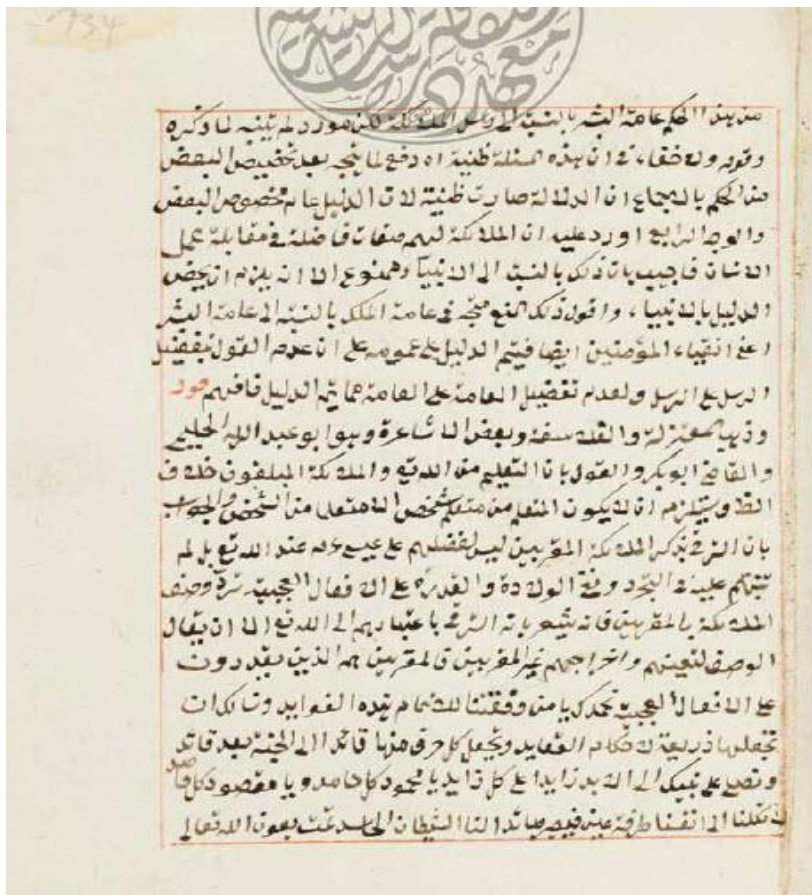 من هذا الحكم عامة البشر بالنسبة الى رسل الملائكة لكن مورد لم يتنبه لما ذكره
وقوله ولا خفاء في ان هذه المسئلة ظنية اه دفع لما يتجه بعد تخصيص البعض
من الحكم بالاجماع ان الدلالة صارت ظنية لان الدليل عام مخصوص البعض
والوجه الرابع اورد عليه ان الملائكة لهم صفات فاضلة في مقابلة عمل
الانسان فاجيب بان ذلك بالنسبة الى الانبياء وممنوع الا ان يلزم ان يخص
الدليل بالانبياء واقول ذلك المنع متجه في عامة الملك بالنسبة الى عامة البشر
اعني اتقياء المؤمنين ايضا فيتم الدليل على عمومه على ان عدم القول بتفضيل
الرسل على الرسل ولعدم تفضيل العامة على العامة مما يتم الدليل فافهم قوله
وذهب المعتزلة والفلاسفة وبعض الاشاعرة وهو ابو عبد الله الحليمي
والقاضي ابو بكر والقول بان التعليم من الله تع والملائكة المبلغون خلاف
الظ ويستلزم ان لا يكون المتعلم من متعلم شخص الا متعلما من الشخص والجواب
بان الترقي بذكر الملائكة المقربين ليس لفضلهم على عيسى عم عند الله تع بل لم
عليه في التجرد وفي الولادة والقدرة على الافعال العجيبة ترده وصف
الملائكة بالمقربين فانه يشعر بانه الترقي باعتبارهم الى الله تع الا ان يقال
الوصف لتعينهم واخراجهم غير المقربين فالمقربين هم الذين يقدرون
على الافعال العجيبة نحمدك يا من وفقتنا للاتمام بهذه الفوايد ونسالك ان
تجعلها ذريعة لاحكام العقايد وتجعل كل حرف منها قائدا الى الجنة بعد قائد
ونصلي على نبيك الى الابد زايدا على كل زايد يا محمود كل حامد ويا مقصود كل قاصد
لا تكلنا الى انفسنا طرفة عين الينا الشيطان الحاسد تمت بعون الله تعالى